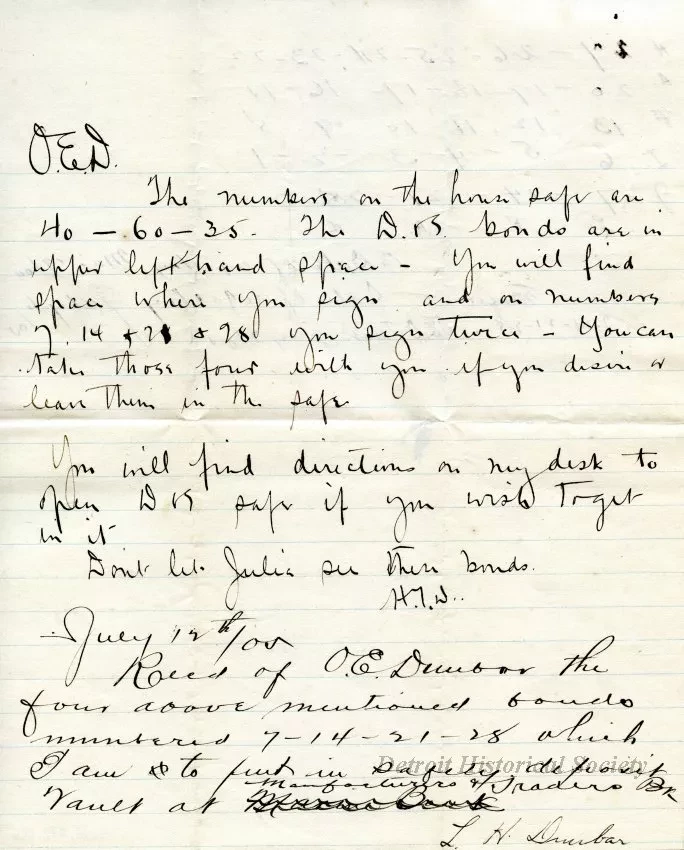 O.E.D.
The numbers on the house safe are
40 – 60 – 35. The D.B. bonds are in
upper left hand space – You will find
space where you sign and on numbers
7, 14 & 21 & 28 you sign twice – You can
take those four with you if you desire or
leave them in the safe
You will find directions on my desk to
open D B safe if you wish to get
in it
Dont let Julia see these bonds.
H.I.D..
July 12th/05
Recd of O.E. Dunbar the
four above mentioned bonds
numbered 7-14-21-28 which
I am to put in safety deposit
Manufacturers & Traders Bk
Vault at
L. H. Dunbar
Detroit Historical Society